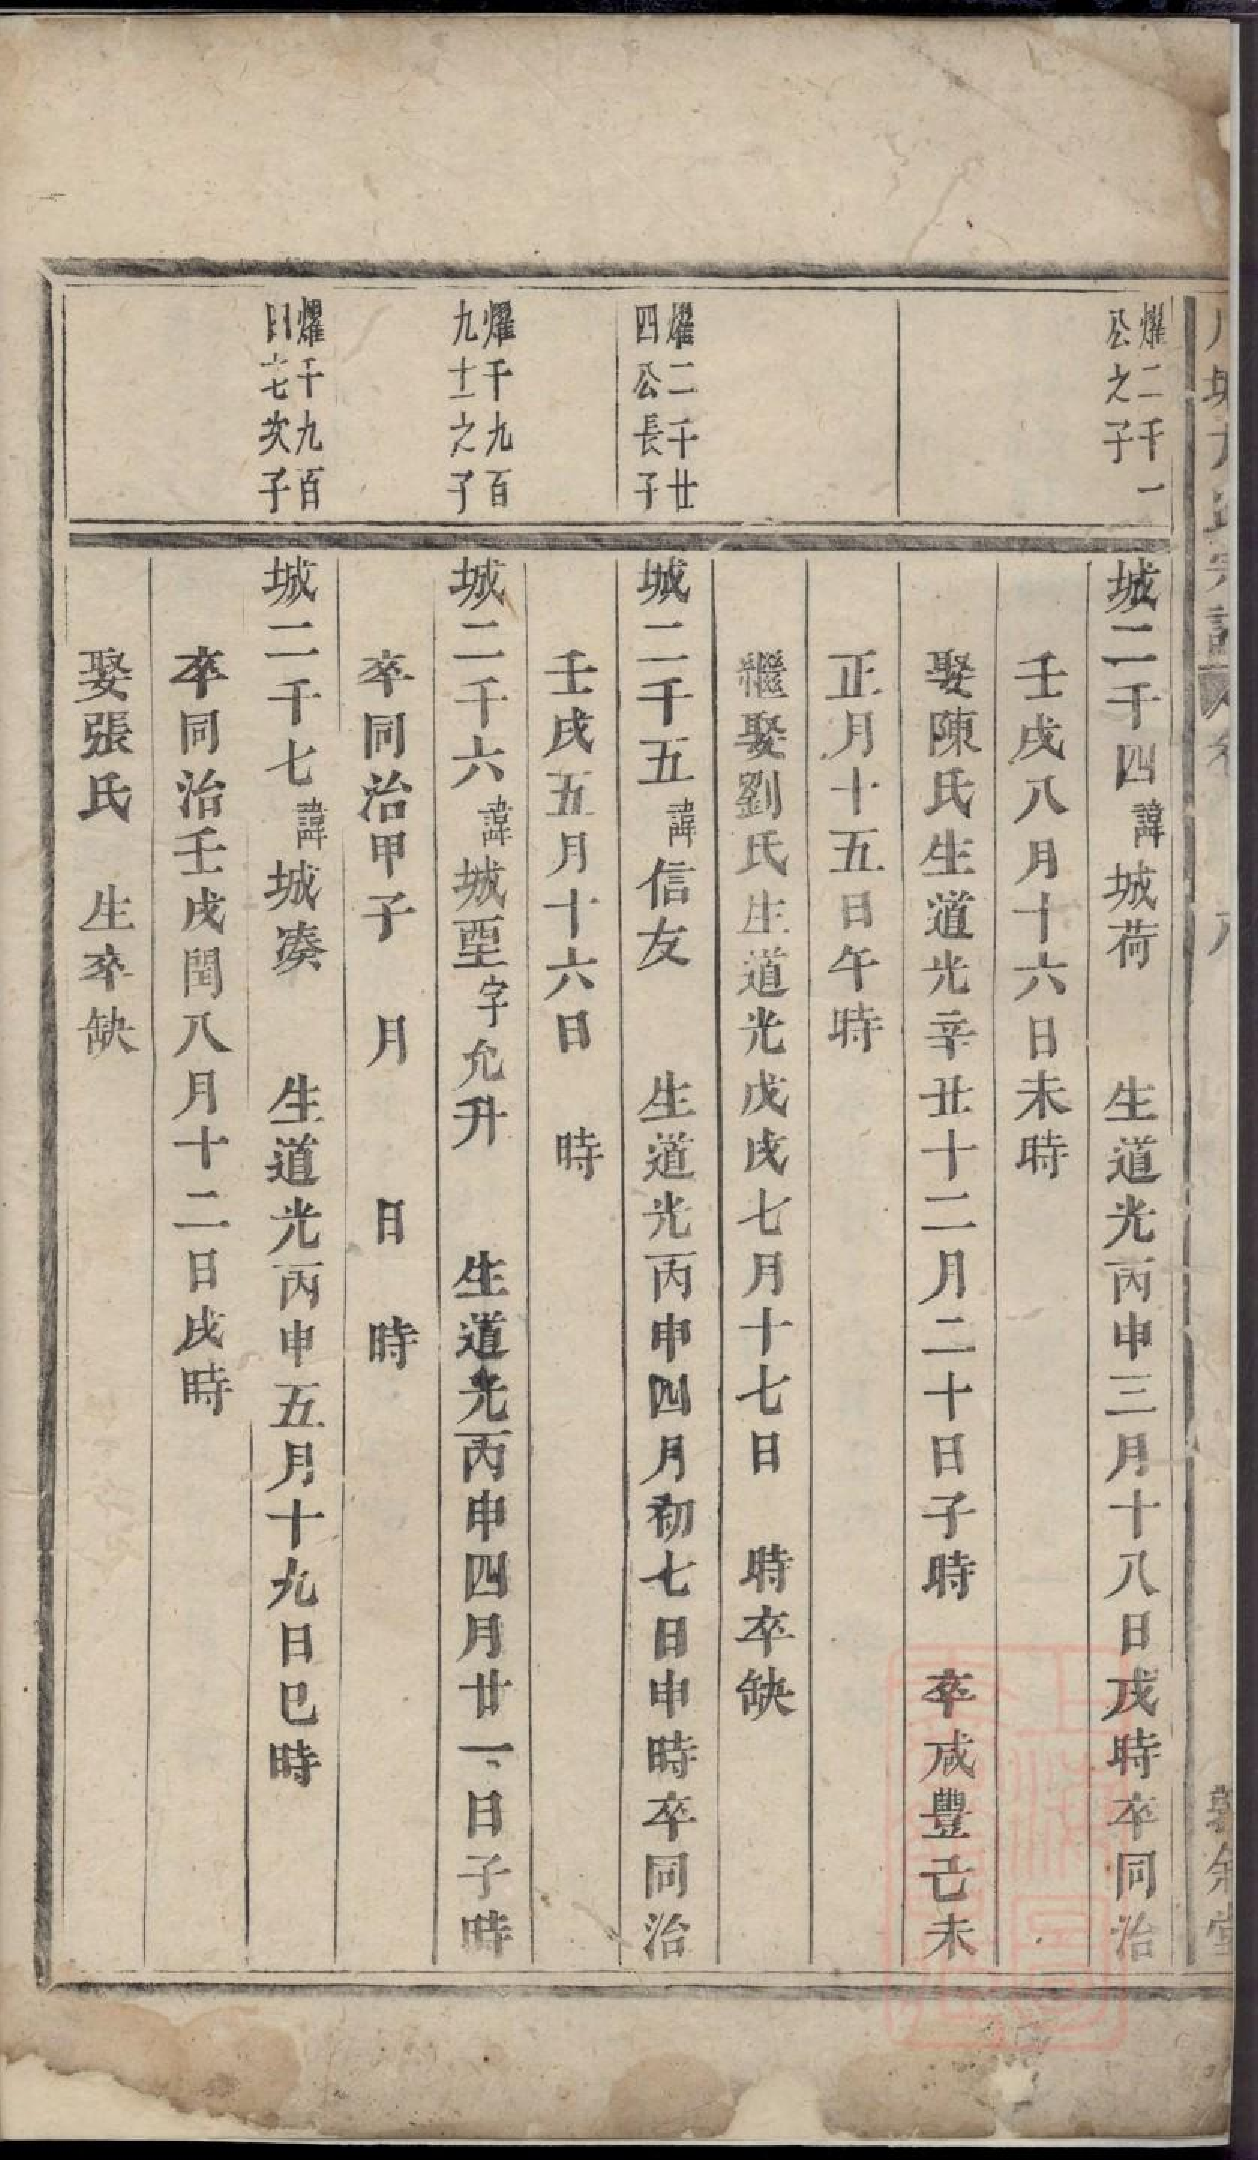 燿二千一
公之子
城二千四諱城荷 生道光丙申三月十八日戌時卒同治
壬戌八月十六日未時
娶陳氏生道光辛丑十二月二十日子時 卒咸豐己未
正月十五日午時
繼娶劉氏生道光戊戌七月十七日 時卒缺
燿二千廿
四公長子
城二千五諱信友 生道光丙申四月初七日申時卒同治
壬戌五月十六日 時
燿千九百
九十一之子
城二千六諱城垔字允升 生道光丙申四月廿一日子時
卒同治甲子 月 日 時
燿千九百
七次子
城二千七諱城凑 生道光丙申五月十九日巳時
卒同治壬戌閏八月十二日戌時
娶張氏 生卒缺